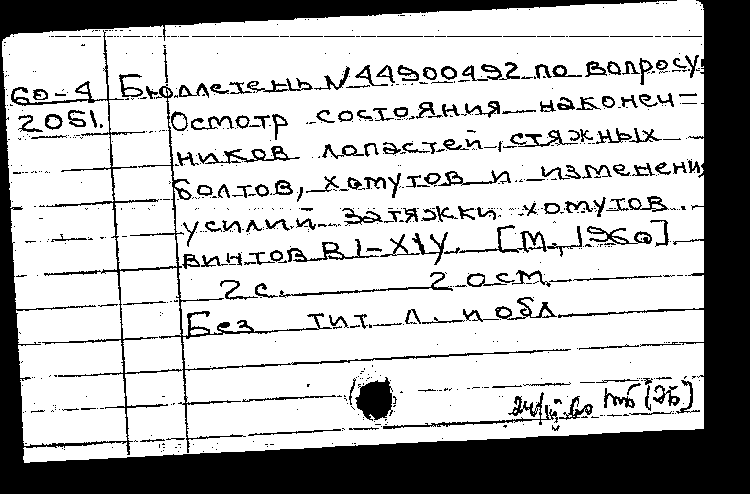 60-4 Бюллетень N44900492 по вопросу:
2051. Осмотр состояния наконеч=
ников лопастей, стяжных
болтов, хомутов и изменени
усилий затяжки хомутов.
винтов В1-Х1У. [М., 1960].
2 с. 2 ост.
Без тит. л. и обл.